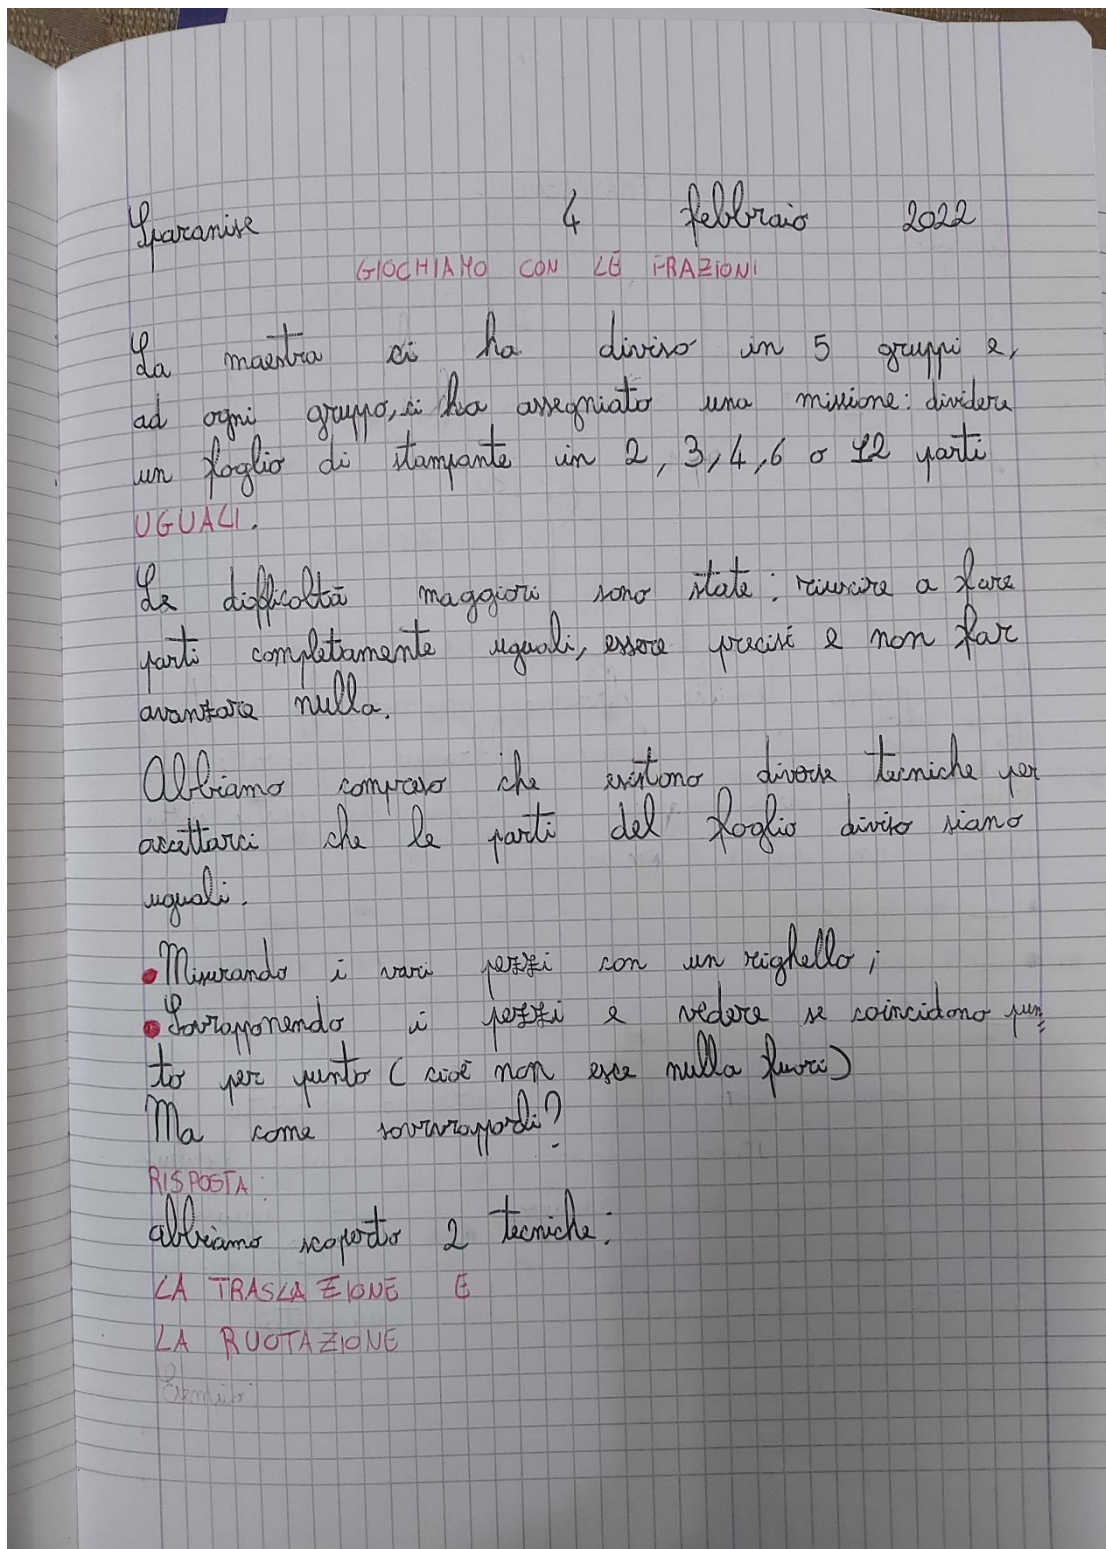 Sparanise 4 febbraio 2022
GIOCHIAMO CON LE FRAZIONI
La maestra ci ha diviso in 5 gruppi e,
ad ogni gruppo, ci ha assegniato una missione: dividere
un foglio di stampante in 2, 3, 4, 6 o 12 parti
UGUALI.
Le difficoltà maggiori sono state: riuscire a fare
parti completamente uguali, essere precisi e non far
avanzare nulla.
Abbiamo compreso che esistono diverse tecniche per
accettarci che le parti del foglio diviso siano
uguali.
• Misurando i vari pezzi con un righello;
• Sovrapponendo i pezzi e vedere se coincidono pun
to per punto (cioè non esce nulla fuori)
Ma come
RISPOSTA:
abbiamo scoperto 2 tecniche:
LA TRASLAZIONE E
LA RUOTAZIONE